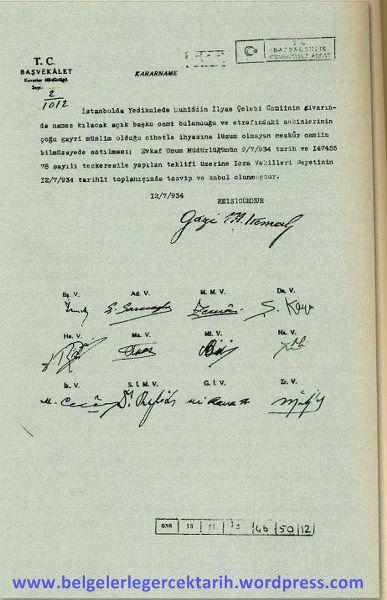 T. C.
BAŞVEKÂLET
Kararlar Müdürlüğü
Sayı:
2
1012
KARARNAME
T. C.
BAŞBAKANLIK
CUMHURİYET ARŞİVİ
İstanbulda Yedikulede Muhiddin İlyas Çelebi Camiinin civarın-
da namaz kılacak açık başka cami bulunduğu ve etrafındaki sakinlerinin
çoğu gayri müslim olduğu cihetle ihyasına lüzum olmıyan mezkûr camiin
bilmüzayede satılması; Evkaf Umum Müdürlüğünün 9/7/934 tarih ve 147455
78 sayılı tezkeresile yapılan teklifi üzerine İcra Vekilleri Heyetinin
12/7/934 tarihli toplanışında tasvip ve kabul olunmuştur.
12/7/934
REİSİCUMHUR
Gazi M. Kemal
Bş. V.
Ad. V.
M. M. V.
Da. V.
Ş. Kaya
Ha. V.
Ma. V.
Mf. V.
Na. V.
İk. V.
S. İ. M. V.
G. İ. V.
Zr. V.
030 18 01 46 50 12
www.belgelerlegercektarih.wordpress.com